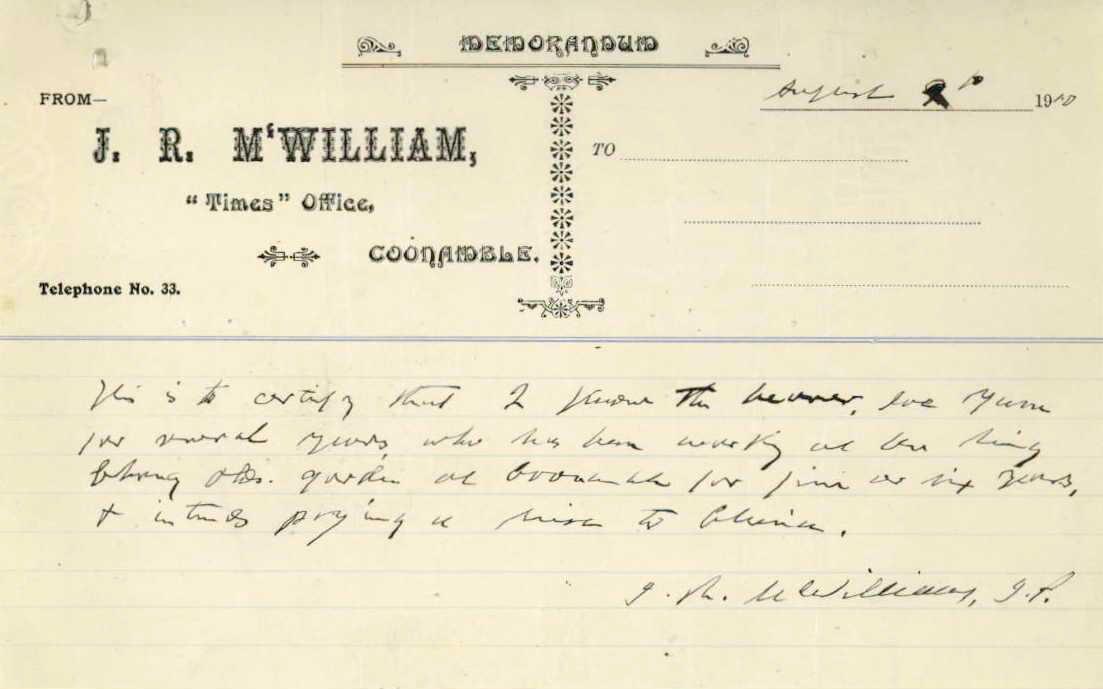 MEMORANDUM
August 10 1910
FROM—
J. R. M‘WILLIAM,
TO
“Times” Office,
COONAMBLE.
Telephone No. 33.
This is to certify that I know the bearer, Loe Yum
for several years, who has been working at
garden at Coonamble for five or six years,
& intends paying a visit to China.
J. R. McWilliam, J.P.